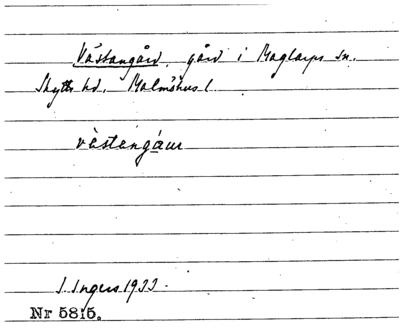 Västangård, gård i Maglarps sn.
Skytts hd. Malmöhus l.
västengáur
I. Ingers 1933.
Nr 5815.